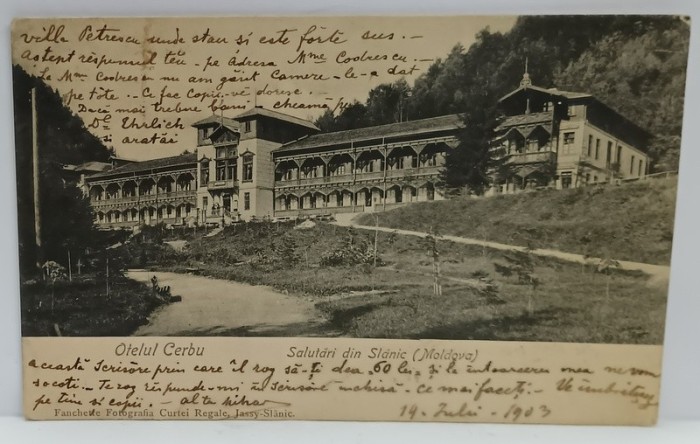 villa Petrescu unde stau și este forte sus. —
astept respunsul tĕu - pe adresa Mme Codrescu. —
La Mme Codrescu nu am găsit Camere - le-a dat
pe tóte. — Ce fac Copii. vĕ doresc. —
Dacă mai trebue bani - cheamă pe
Dl Ehrlich
si arată-i
Otelul Cerbu
Salutări din Slănic (Moldova)
această scrisóre prin care îl rog să-ți dea 60 lei și la intoarcerea mea ne vom
socoti. — Te rog respunde-mi în scrisóre închisă. — Ce mai faceți. — Vĕ
pe tine si copii. — al tĕu Mihai
Fanchette Fotografia Curtei Regale, Jassy-Slănic.
19. Iulie. - 1903